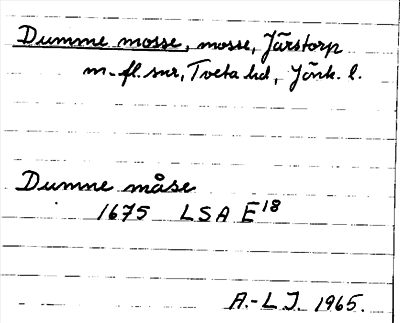 Dumme mosse, mosse, Järstorp
m. fl. snr, Tveta hd, Jönk. l.
Dumne måse
1675 LSA E18
A.-L J. 1965.